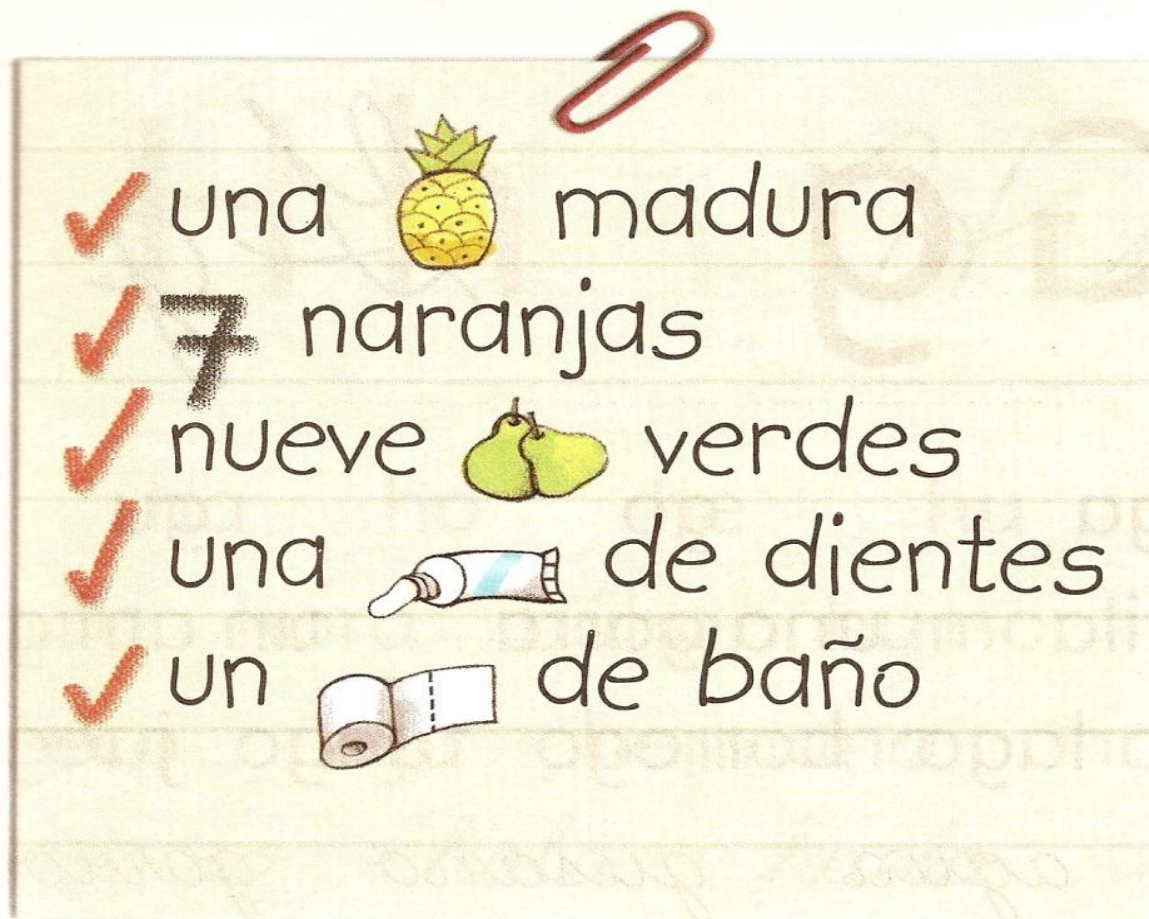 una madura
7 naranjas
nueve verdes
una de dientes
un de baño